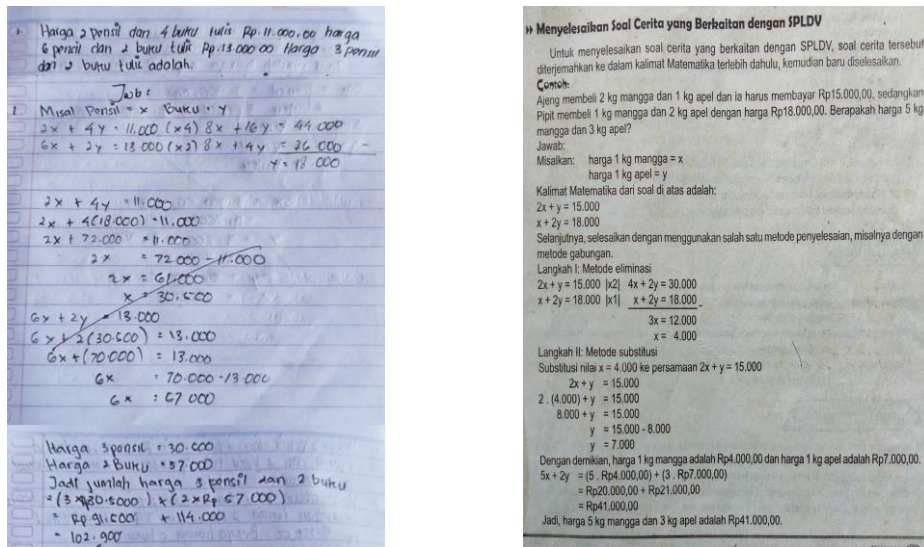 1. Harga 2 pensil dan 4 buku tulis Rp. 11.000,00 harga
6 pensil dan 2 buku tulis Rp. 13.000 00 Harga 3 pensil
dan 2 buku tulis adalah.
Jwb:
Misal Pensil = x Buku = y
2x + 4y = 11.000 (x4) 8x + 16y = 44 000
6x + 2y = 13 000 (x2) 8x + 4y = 26 000 -
y = 18 000
2x + 4y = 11.000
2x + 4(18.000) = 11.000
2x + 72.000 = 11.000
2x = 72.000 - 11.000
2x = 61.000
x = 30.500
6x + 2y = 13.000
6x + 2(30.500) = 13.000
6x + (70.000) = 13.000
6x = 70.000 - 13.000
6x = 57 000
Harga 3 pensil = 30.500
Harga 2 Buku = 57.000
Jadi jumlah harga 3 pensil dan 2 buku
= (3 x Rp30.5000) + (2 x Rp 57.000)
= Rp 91.500 + 114.000
= 102.900
Menyelesaikan Soal Cerita yang Berkaitan dengan SPLDV
Untuk menyelesaikan soal cerita yang berkaitan dengan SPLDV, soal cerita tersebut
diterjemahkan ke dalam kalimat Matematika terlebih dahulu, kemudian baru diselesaikan.
Contoh:
Ajeng membeli 2 kg mangga dan 1 kg apel dan ia harus membayar Rp15.000,00, sedangkan
Pipit membeli 1 kg mangga dan 2 kg apel dengan harga Rp18.000,00. Berapakah harga 5 kg
mangga dan 3 kg apel?
Jawab:
Misalkan: harga 1 kg mangga = x
harga 1 kg apel = y
Kalimat Matematika dari soal di atas adalah:
2x + y = 15.000
x + 2y = 18.000
Selanjutnya, selesaikan dengan menggunakan salah satu metode penyelesaian, misalnya dengan
metode gabungan.
Langkah I: Metode eliminasi
2x + y = 15.000 |x2| 4x + 2y = 30.000
x + 2y = 18.000 |x1| x + 2y = 18.000 -
3x = 12.000
x = 4.000
Langkah II: Metode substitusi
Substitusi nilai x = 4.000 ke persamaan 2x + y = 15.000
2x + y = 15.000
2 . (4.000) + y = 15.000
8.000 + y = 15.000
y = 15.000 - 8.000
y = 7.000
Dengan demikian, harga 1 kg mangga adalah Rp4.000,00 dan harga 1 kg apel adalah Rp7.000,00.
5x + 2y = (5 . Rp4.000,00) + (3 . Rp7.000,00)
= Rp20.000,00 + Rp21.000,00
= Rp41.000,00
Jadi, harga 5 kg mangga dan 3 kg apel adalah Rp41.000,00.